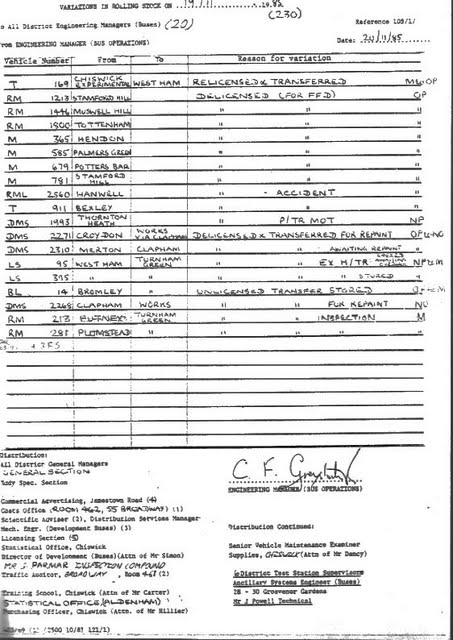 VARIATIONS IN ROLLING STOCK ON 19/11 1985
(230)
All District Engineering Managers (Buses) (20) Reference 109/1/
ENGINEERING MANAGER (BUS OPERATIONS) Date: 20/11/85
Vehicle Number From To Reason for variation
T 169 CHISWICK EXPERIMENTAL WEST HAM RELICENSED & TRANSFERRED
RM 1213 STAMFORD HILL DELICENSED (FOR FFD) OP
RM 1446 MUSWELL HILL " " "
RM 1500 TOTTENHAM " " "
M 365 HENDON " " "
M 585 PALMERS GREEN " " "
M 679 POTTERS BAR " " "
M 781 STAMFORD HILL " " "
RML 2560 HANWELL " - ACCIDENT "
T 911 BEXLEY " " "
DMS 1993 THORNTON HEATH " P/TR MOT NP
DMS 2271 CROYDON WORKS VIA CLAPHAM DELICENSED & TRANSFERRED FOR REPAINT
DMS 2310 MERTON CLAPHAM " " AWAITING REPAINT "
LS 95 WEST HAM TURNHAM GREEN " " EX H/TR
LS 375 " " " " " STORED "
BL 14 BROMLEY UNLICENSED TRANSFER STORED
DMS 2268 CLAPHAM WORKS " " FOR REPAINT
RM 213 PUTNEY TURNHAM GREEN " " INSPECTION M
RM 281 PLUMSTEAD " " " " "
Distribution:
All District General Managers
GENERAL SECTION
Body Spec. Section
ENGINEERING MANAGER (BUS OPERATIONS)
Commercial Advertising, Jamestown Road (4)
Costs Office (ROOM 462, 55 BROADWAY) (1)
Scientific Adviser (2), Distribution Services Manager
Mech. Engr. (Development Buses) (3)
Licensing Section (5)
Statistical Office, Chiswick
Director of Development (Buses)(Attn of Mr Simon)
MR J PARMAR INSPECTION COMPOUND
Traffic Auditor, BROADWAY, ROOM 467 (2)
Training School, Chiswick (Attn of Mr Carter)
STATISTICAL OFFICE (ALDENHAM)
Purchasing Officer, Chiswick (Attn. of Mr Hillier)
Distribution Continued:
Senior Vehicle Maintenance Examiner
Supplies, CHISWICK (Attn of Mr Dancy)
6 District Test Station Supervisors
Ancillary Systems Engineer (Buses)
28 - 30 Grosvenor Gardens
Mr J Powell Technical